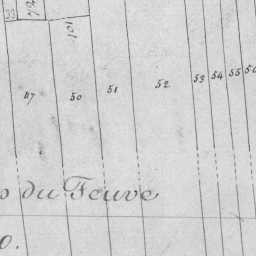 33
101
47 50 51 52 53 54 55
du Feuve
0.